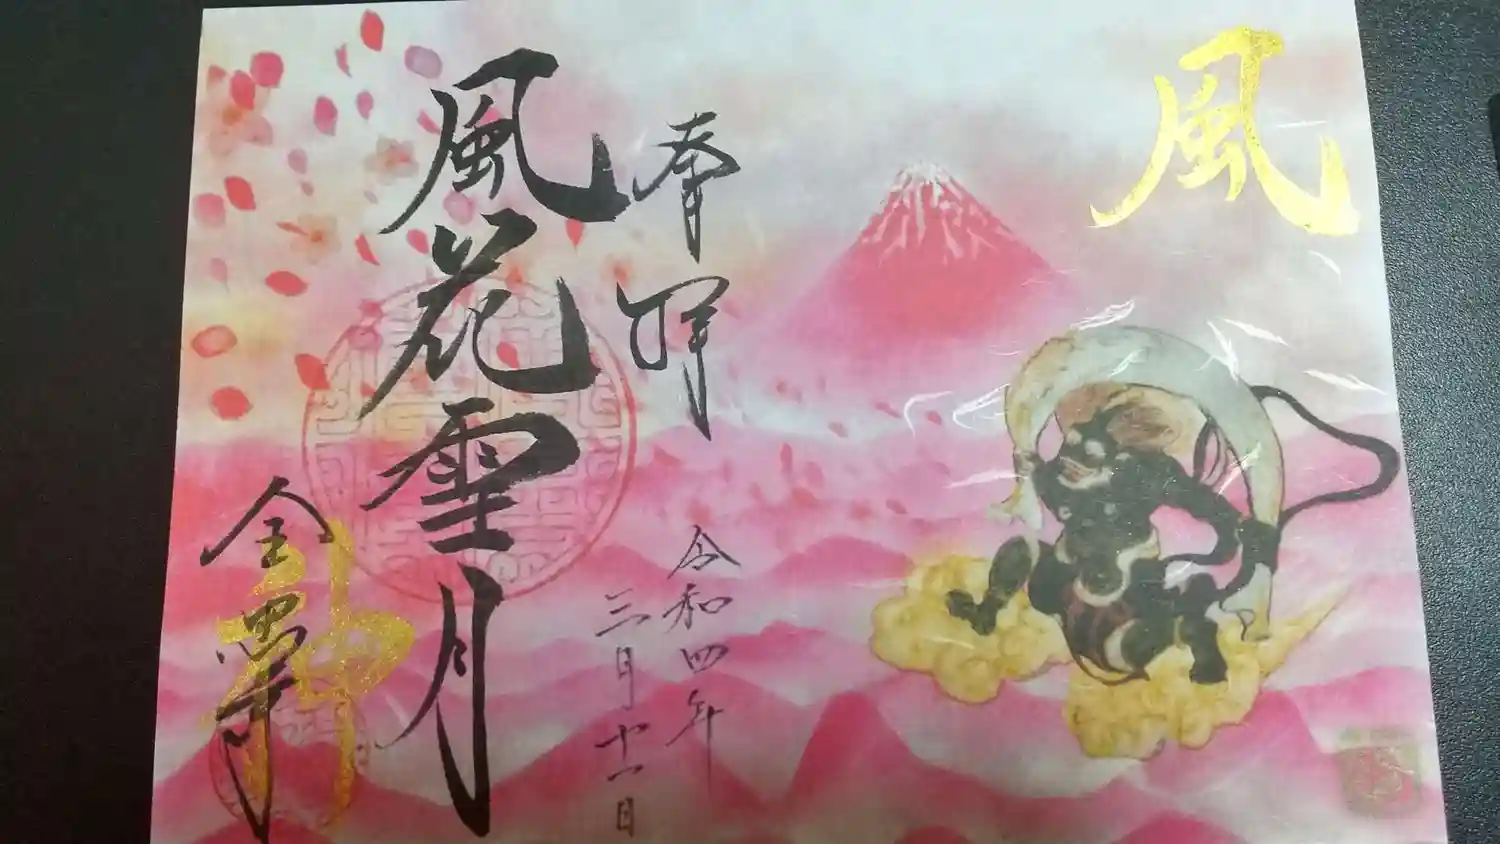 風
奉拝
令和四年
三月十一日
風花雪月
神